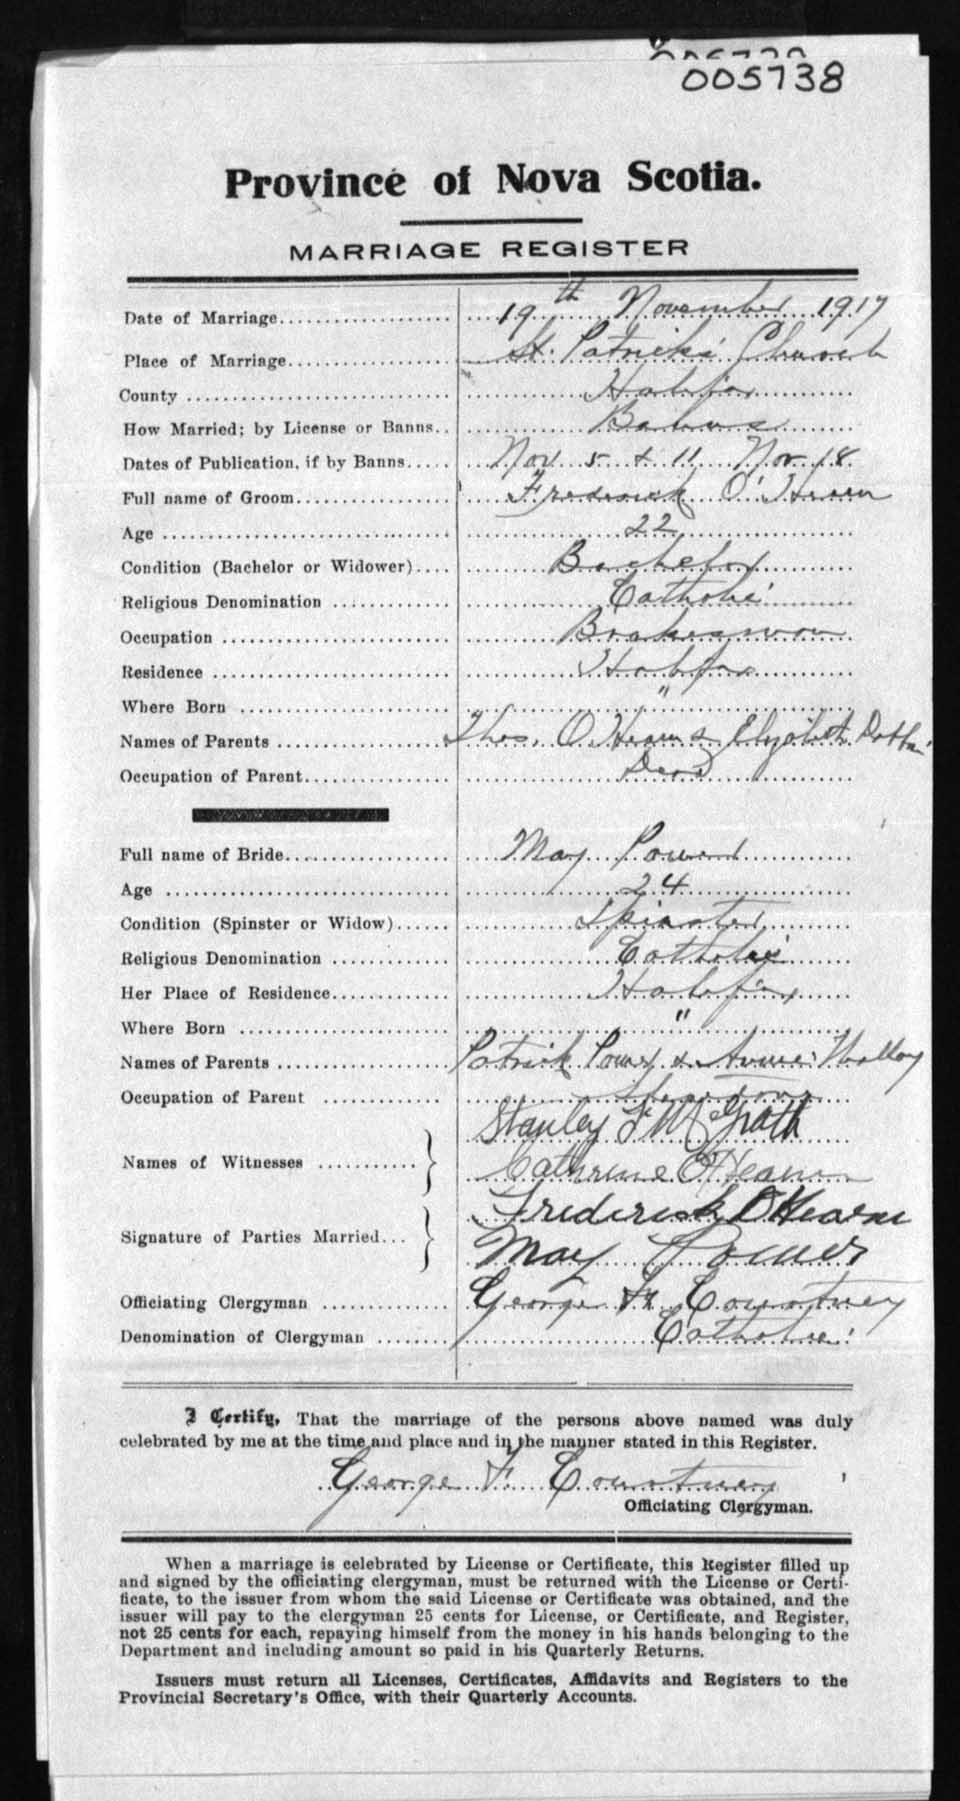 005738
005738
Province of Nova Scotia.
MARRIAGE REGISTER
Date of Marriage 19th November 1917
Place of Marriage St. Patrick's Church
County Halifax
How Married; by License or Banns Banns
Dates of Publication, if by Banns Nov 5 & 11 Nov 18
Full name of Groom Frederick O'Hearn
Age 22
Condition (Bachelor or Widower) Bachelor
Religious Denomination Catholic
Occupation Brakesman
Residence Halifax
Where Born "
Names of Parents Thos. O'Hearn & Elizabeth
Occupation of Parent Dead
Full name of Bride May Power
Age 24
Condition (Spinster or Widow) Spinster
Religious Denomination Catholic
Her Place of Residence Halifax
Where Born "
Names of Parents Patrick Power & Annie
Occupation of Parent
Names of Witnesses Stanley F McGrath
Cathrine O'Hearn
Signature of Parties Married Frederick O'Hearn
May Power
Officiating Clergyman George F. Courtney
Denomination of Clergyman Catholic
I Certify, That the marriage of the persons above named was duly
celebrated by me at the time and place and in the manner stated in this Register.
George F. Courtney
Officiating Clergyman.
When a marriage is celebrated by License or Certificate, this Register filled up
and signed by the officiating clergyman, must be returned with the License or Certi-
ficate, to the issuer from whom the said License or Certificate was obtained, and the
issuer will pay to the clergyman 25 cents for License, or Certificate, and Register,
not 25 cents for each, repaying himself from the money in his hands belonging to the
Department and including amount so paid in his Quarterly Returns.
Issuers must return all Licenses, Certificates, Affidavits and Registers to the
Provincial Secretary's Office, with their Quarterly Accounts.